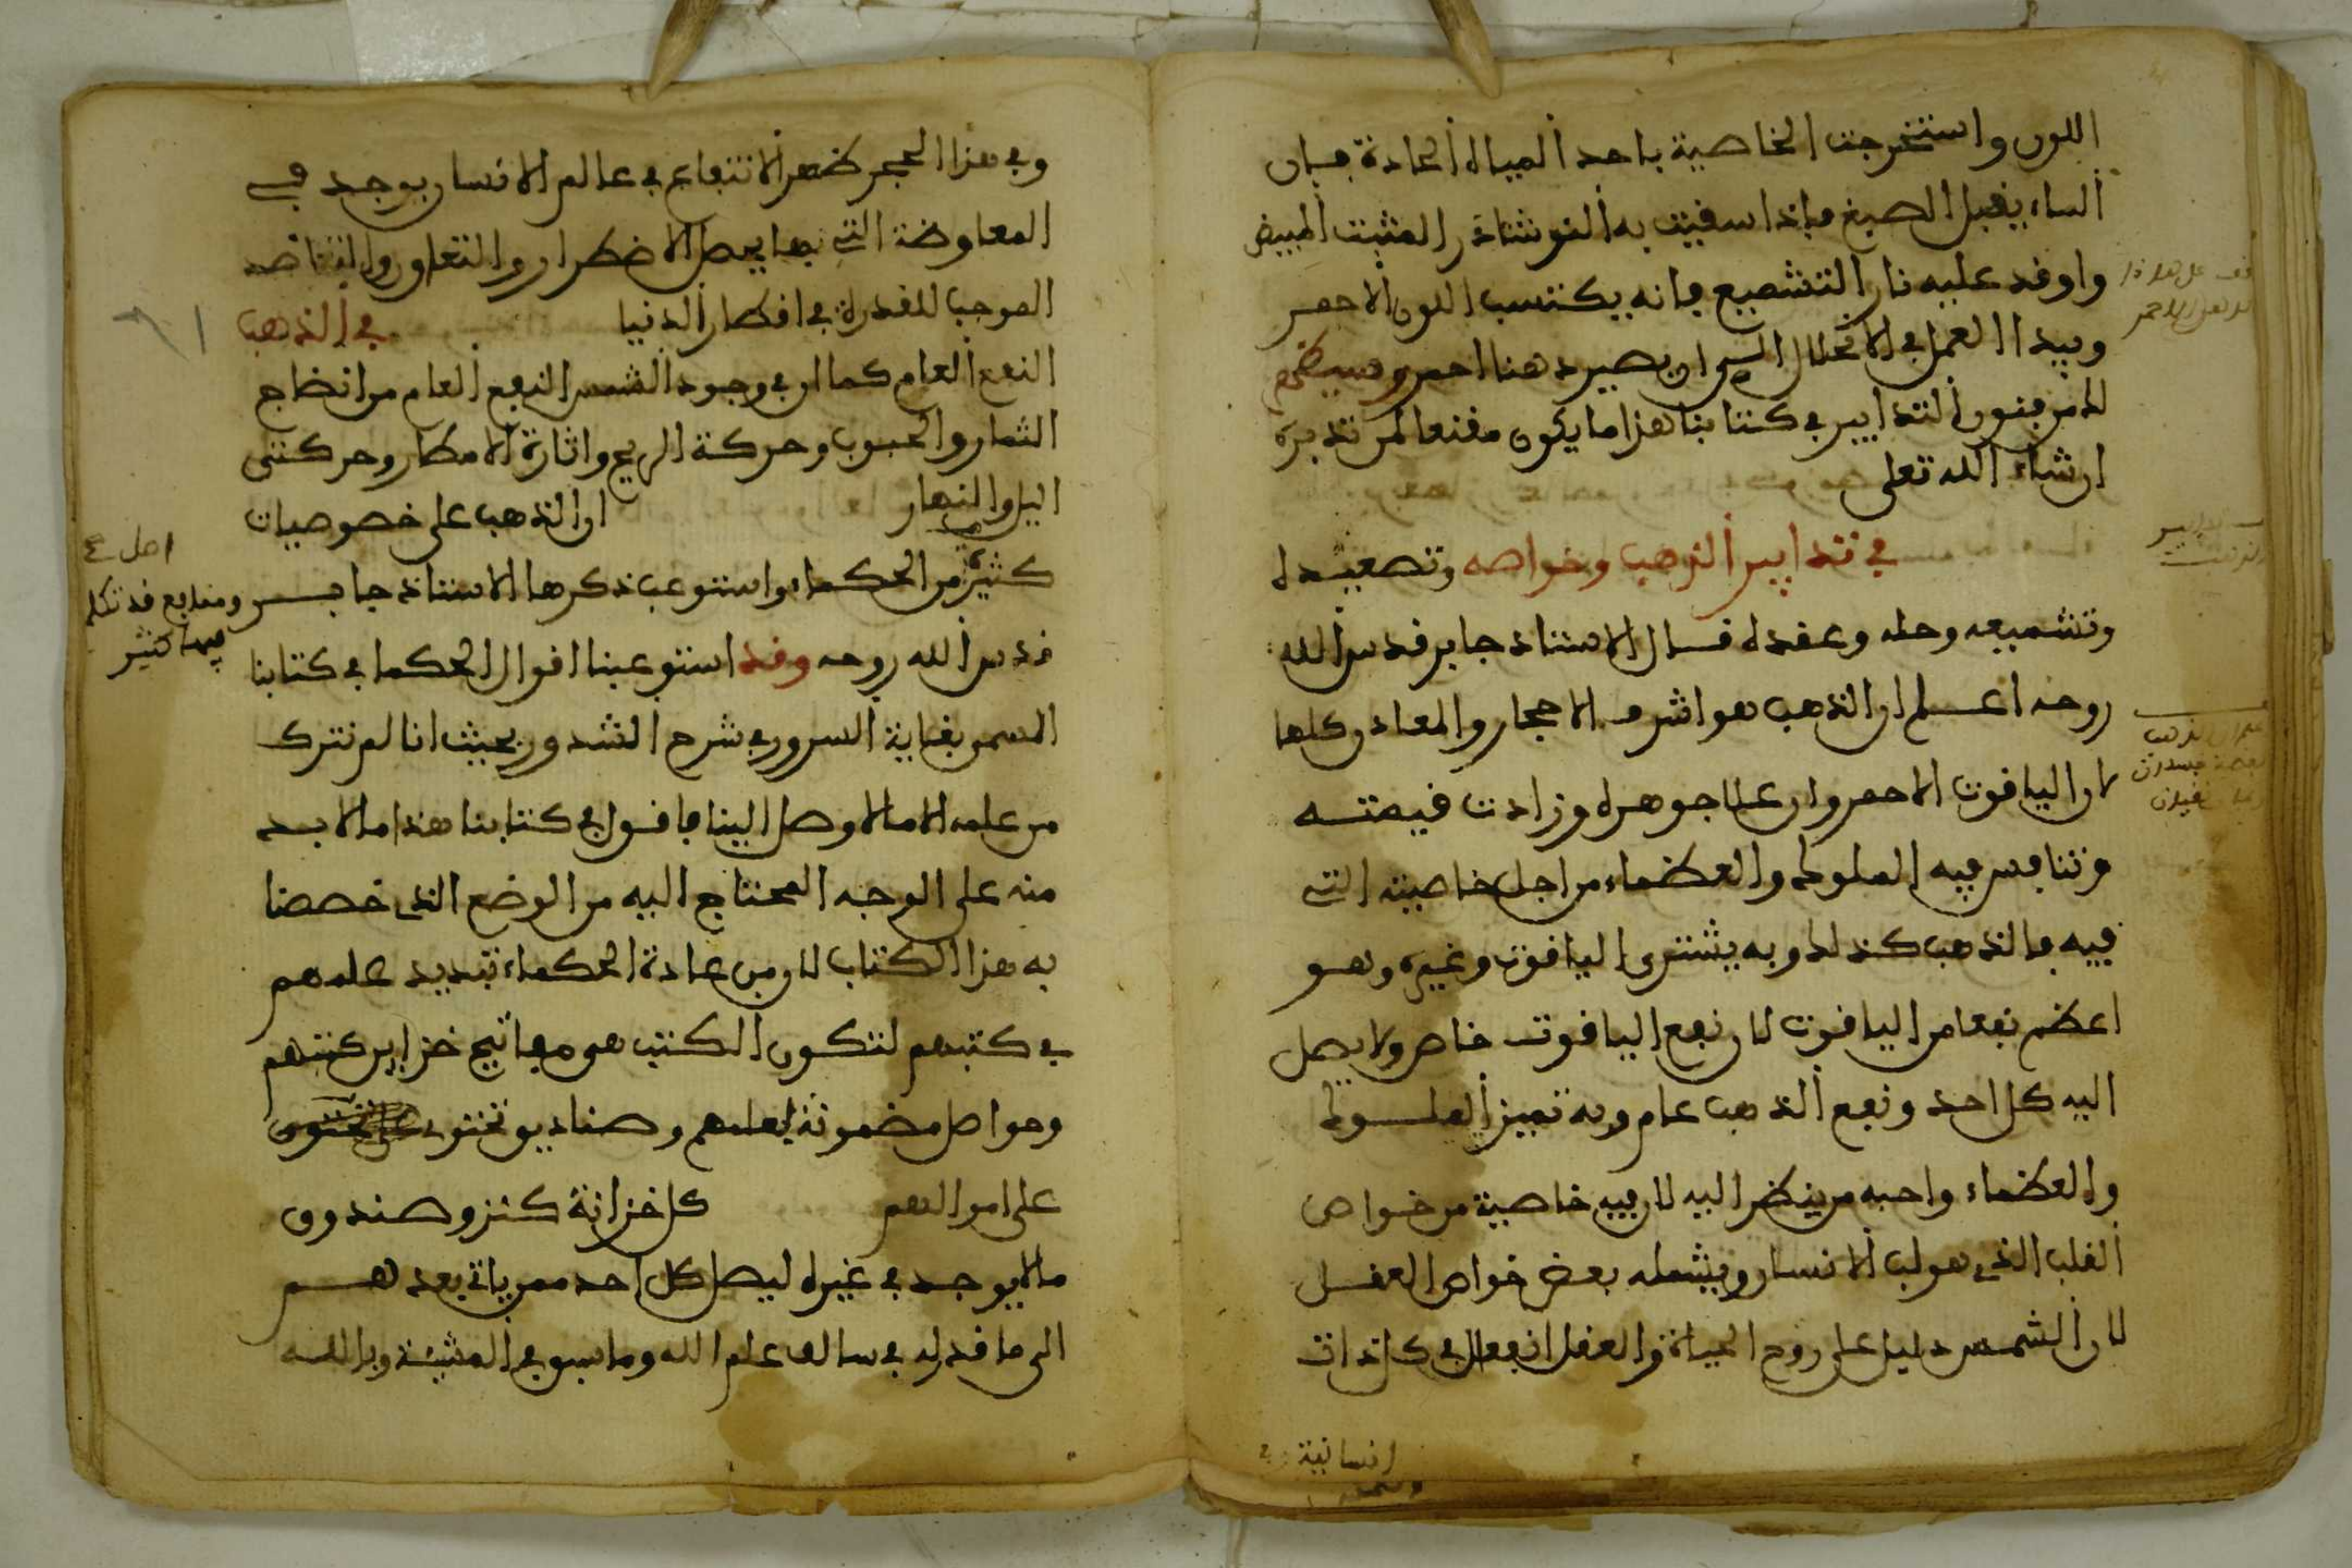 اللون واستخرجت الخاصية باحد المياه الحادة فان
الماء يقبل الصبغ فاذا سقيت به النوشاذر المثبت المبيض
واوقد عليه نار التشميع فانه يكتسب اللون الاحمر
ويبدا العمل في الانحلال الى ان يصير دهنا احمر وسيظهر
لك من فنون التدابير في كتابنا هذا ما يكون مقنعا لمن تدبره
ان شاء الله تعلى
في تدابير الذهب وخواصه وتصعيده
وتشميعه وحله وعقده قال الاستاذ جابر قدس الله
روحه اعلم ان الذهب هو اشرف الاحجار والمعادن كلها
لان الياقوت الاحمر وان علا جوهره وزادت قيمته
وتنافس فيه الملوك والعظماء من اجل خاصيته التي
فيه فالذهب كذلك وبه يشترى الياقوت وغيره وهو
اعظم نفعا من الياقوت لان نفع الياقوت خاص ولا يصل
اليه كل احد ونفع الذهب عام وبه تميز الملوك
والعظماء واحبه من ينظر اليه لان فيه خاصية من خواص
القلب الذي هو لب الانسان ويشمله بعض خواص العقل
لان الشمس دليل على روح الحياة والعقل انفعال في كل ذات
انسانية
وفي هذا الحجر ظهر الانتفاع في عالم الانسان يوجد في
المعاوضة التي بها يصل الاضطرار والتعاون والتناصر
الموجب للقدرة في اقطار الدنيا في الذهب
النفع العام كما ان في وجود الشمس النفع العام من انضاج
الثمار والحبوب وحركة الريح واثارة الامطار وحركتى
اليل والنهار ان الذهب على خصوصيات
اصل ع
ومنافع قد تكلم
فيها كثير
كثيرة من الحكماء واستوعب ذكرها الاستاذ جابر
قدس الله روحه وقد استوعبنا اقوال الحكما في كتابنا
المسمى بغاية السرور في شرح الشذور بحيث انا لم نترك
من علمه الا ما لا وصل الينا فاقول في كتابنا هذا ما لا بد
منه على الوجه المحتاج اليه من الوضع الذى خصصنا
به هذا الكتاب لان من عادة الحكماء تبديد علمهم
في كتبهم لتكون الكتب هو مفاتيح خزاين كتبهم
وحواصل مضمونة لعلمهم وصناديق تحتوى
على اموالهم كل خزانة كنز وصندوق
ما لا يوجد في غيره ليصل كل احد ممن ياتي بعدهم
الى ما قدر له في سالف علم الله وما سبق في المشيئة وبالله